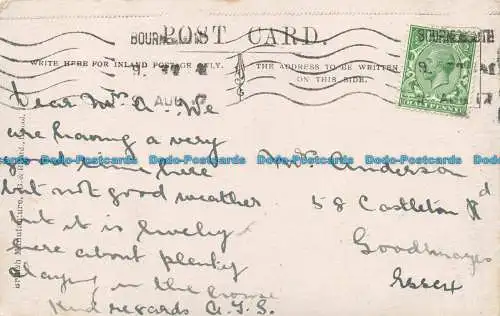 POST CARD.
BOURNEMOUTH
WRITE HERE FOR INLAND POSTAGE ONLY.
THE ADDRESS TO BE WRITTEN
ON THIS SIDE.
AUG 17
Dear Mrs A. We
are having a very
good time here
but not good weather
but it is lovely
here about plenty
playing in the
Kind regards A.J.S.
Mrs Anderson
58 Castleton Rd
Goodmayes
Essex
HALFPENNY
British Manufacture,
Dodo-Postcards Dodo-Postcards Dodo-Postcards Dodo-Postcards Dodo-Postcards